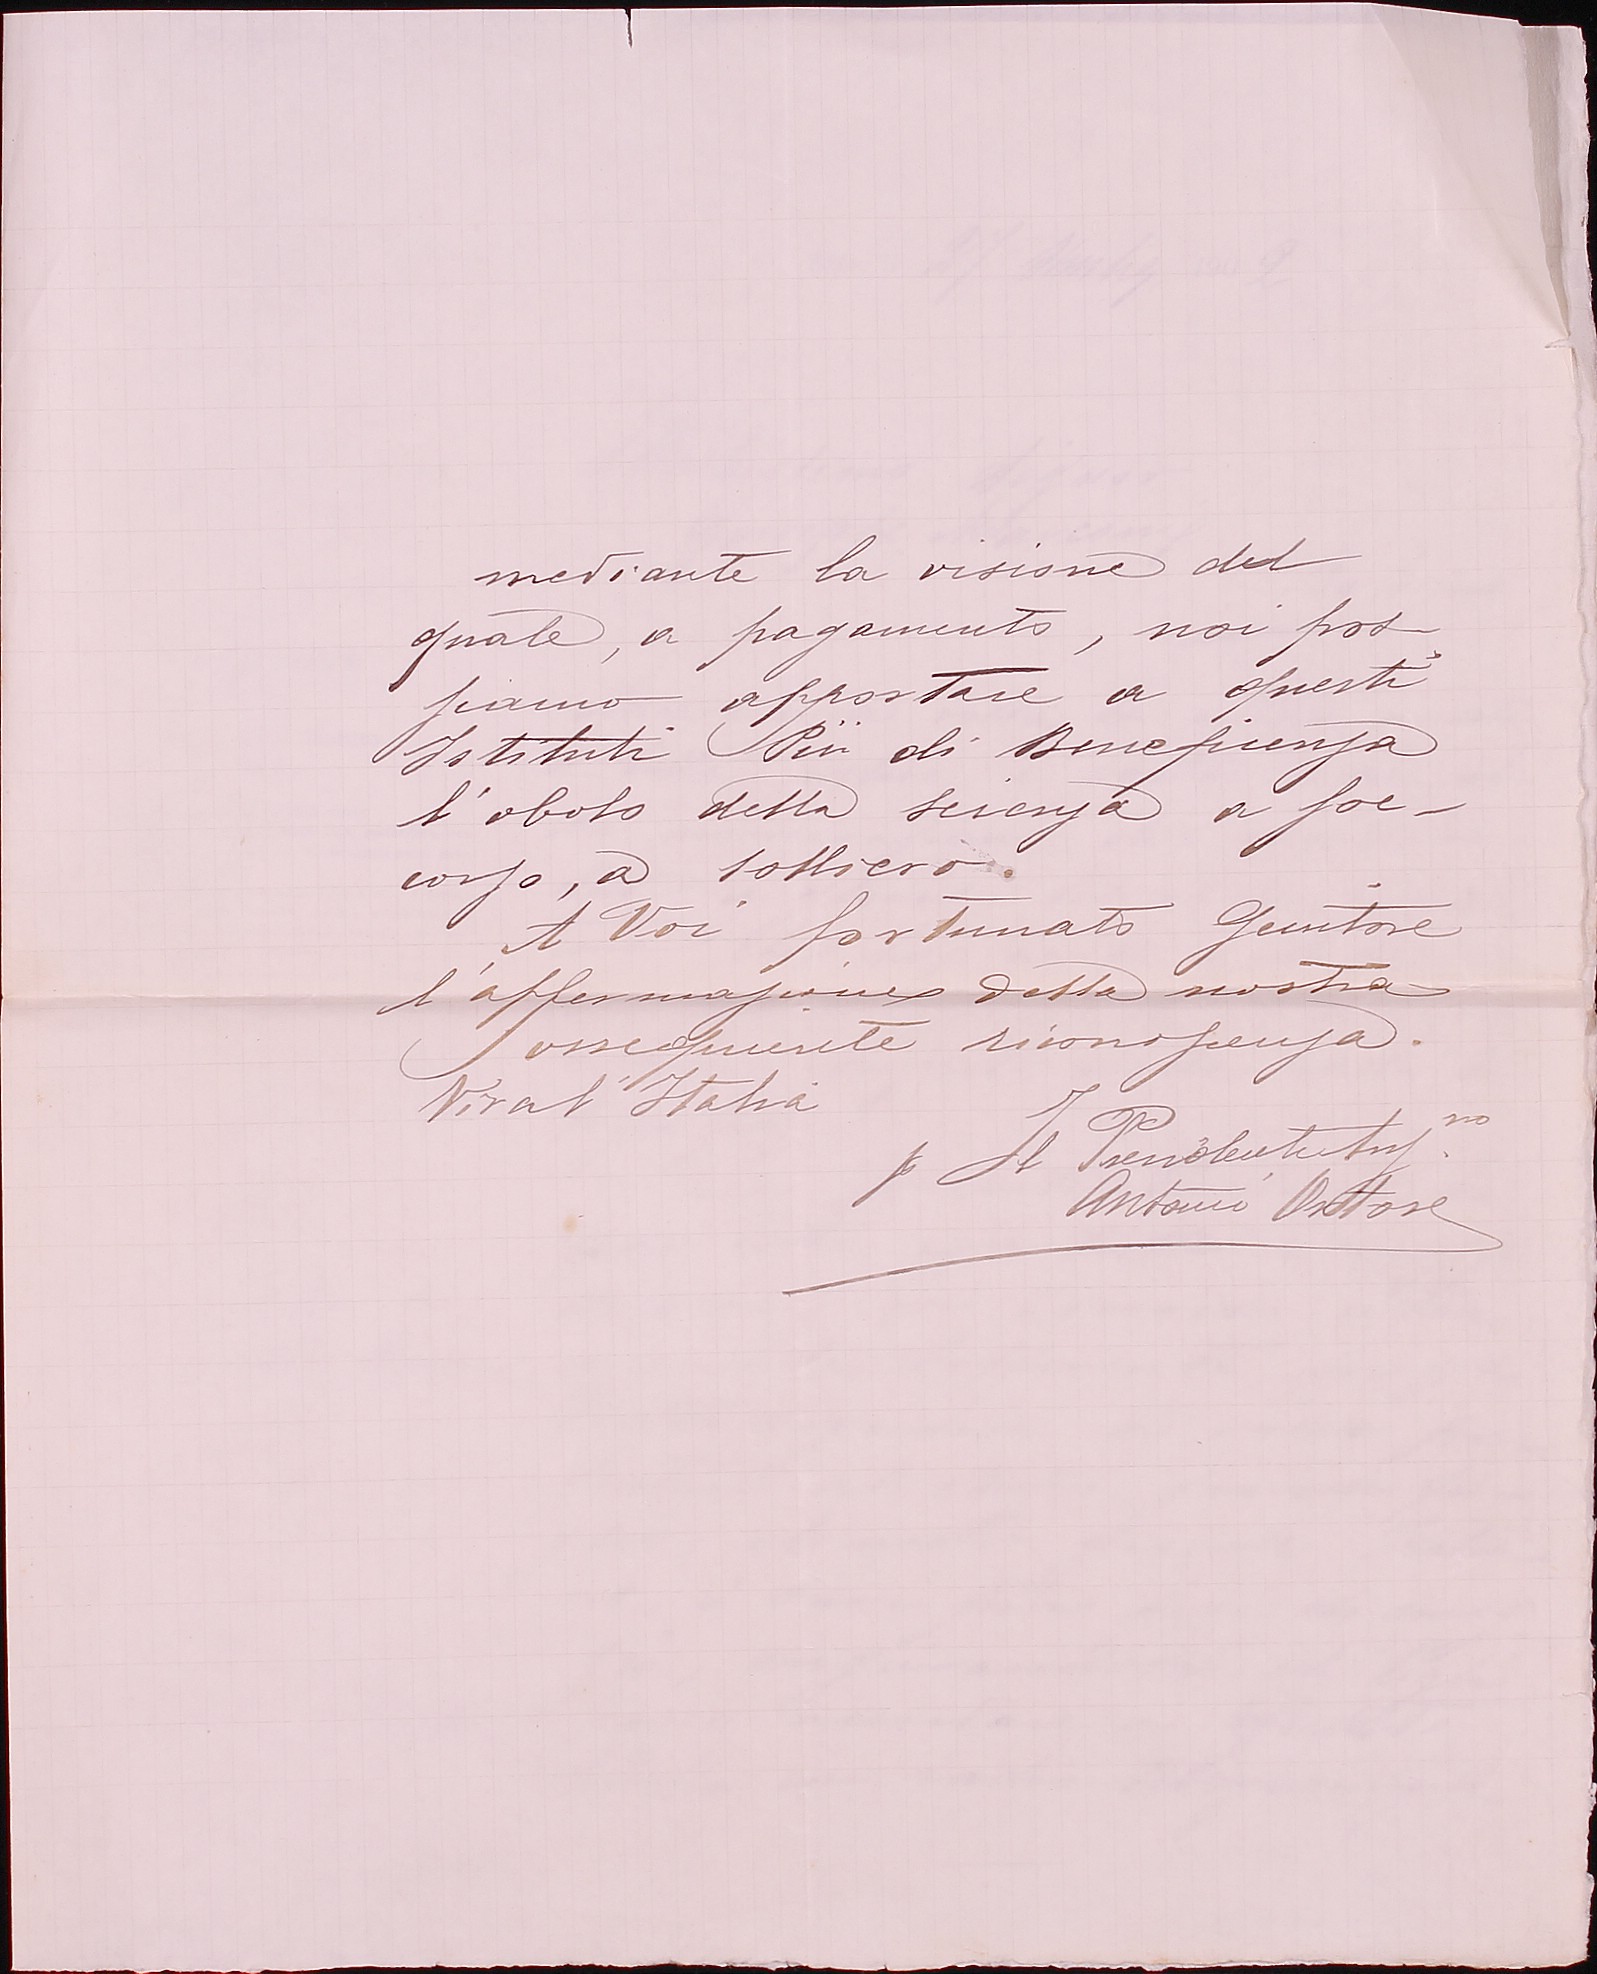 mediante la visione del
quale, a pagamento, noi pos-
siamo apportare a questi
Istituti Pii di Beneficenza
l'obolo della scienza a soc-
corso, a sollievo.
A Voi fortunato Genitore
l'affermazione della nostra
ossequiente riconoscenza.
Viva l'Italia
p Il Presidente
Antonio